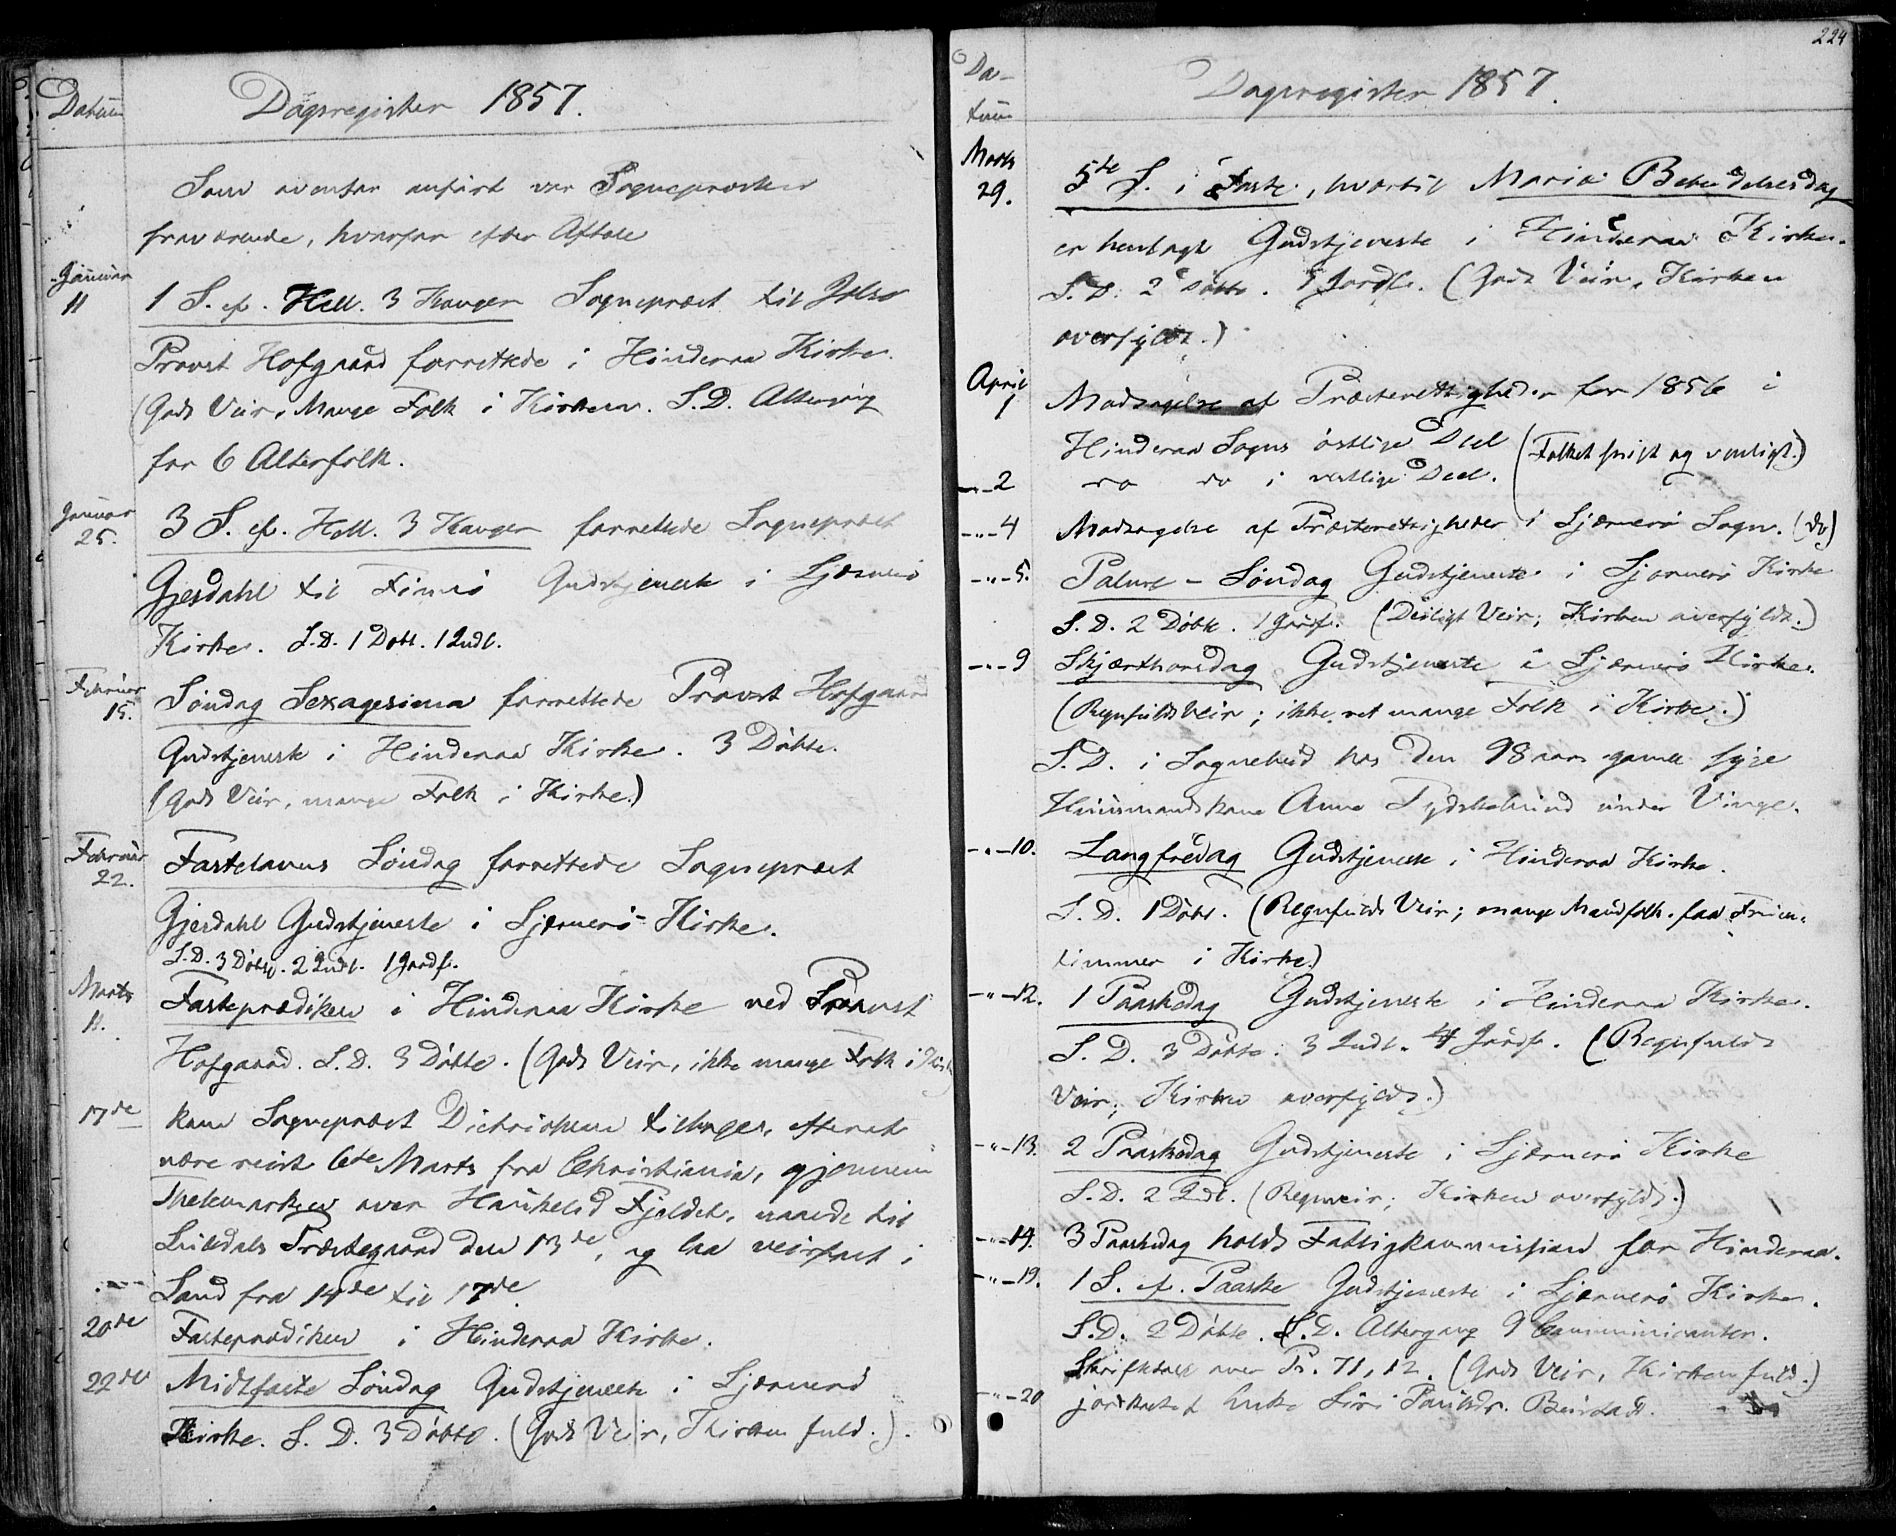 Datum Dagsregister 1857.
Som ovenfor anført var Sognepræsten
fraværende, hvorfor efter Aftale
Januar 11 1 S. ef. Hell. 3 Konger Sognepræst til Jelsø
Provst Hofgaard forrettede i Hinderaa Kirke.
(Godt Veir, Mange Folk i Kirken. S.D. Altergang
for 6 Alterfolk.
Januar 25. 3 S. ef. Hell. 3 Konger forrettede Sognepræst
Gjesdahl til Finnø Gudstjeneste i Sjærnerø
Kirke. S.D. 1 Døbt. 1 Indl.
Februar 15. Søndag Sexagesima forrettede Provst Hofgaard
Gudstjeneste i Hinderaa Kirke. 3 Døbte.
(Godt Veir, mange Folk i Kirke.)
Februar 22. Fastelavns Søndag forrettede Sognepræst
Gjesdahl Gudstjeneste i Sjærnerø-Kirke.
S.D. 3 Døbte. 2 Indl. 1 Jordf.
Marts 11. Fasteprædiken i Hinderaa Kirke ved Provst
Hofgaard. S.D. 3 Døbte. (Godt Veir, ikke mange Folk i Kirk)
17de kom Sognepræst Dietrichson tilbage, efterat
være reist 6te Marts fra Christiania, gjennem
Thelemarken over Haukelid Fjeldet, naaede til
Suledals Præstegaard den 13de, og laa veirfast i
Sand fra 14de til 17de.
20de Fasteprædiken i Hinderaa Kirke.
22de Midtfaste Søndag Gudstjeneste i Sjærnerø
Kirke. S. D. 3 Døbte. (Godt Veir, Kirken fuld.).
224
Da-
tum Dagsregister 1857.
Marts 29. 5te S. i Faste, hvortil Mariæ Bebudelsesdag
er henlagt Gudstjeneste i Hinderaa Kirke.
S.D. 2 Døbte. 5 Jordf. (Godt Veir, Kirken
overfyldt.)
April 1 Modtagelse af Præsterettigheder for 1856 i
Hinderaa Sogns østlige Deel (Folket snilt og venligt.)
-"-2 do do i vestlige Deel.
-"-4 Modtagelse af Præsterettigheder i Sjærnerø Sogn. (do)
-"-5. Palme-Søndag Gudstjeneste i Sjærnerø Kirke
S.D. 2 Døbte. 1 Jordf. (Deiligt Veir; Kirken overfyldt.)
-"-9 Skjærthorsdag Gudstjeneste i Sjærnerø Kirke.
(Regnfuldt Veir; ikke ret mange Folk i Kirke.)
S.D. i Sognebud hos den 98 aar gamle syge
Huusmandskone Anna Tydskelund under Vinge.
-"-10. Langfredag Gudstjeneste i Hinderaa Kirke.
S.D. 1 Døbt. (Regnfuldt Veir; mange Mandfolk. faa Fruen-
timmer i Kirke.)
-"-12. 1 Paaskedag Gudstjeneste i Hinderaa Kirke.
S.D. 3 Døbte. 3 Indl. 4 Jordf. (Regnfuldt
Veir; Kirken overfyldt.)
-"-13. 2 Paaskedag Gudstjeneste i Sjærnerø Kirke
S.D. 2 Indl. (Regnveir; Kirken overfyldt.)
-"-14. 3 Paaskedag holdt Fattigkommission for Hinderaa.
-"-19. 1 S. ef. Paaske Gudstjeneste i Sjærnerø Kirke.
S.D. 2 Døbte. S.D. Altergang 9 Communicanter.
Skriftetale over Ps. 71,12. (Godt Veir, Kirken fuld.)
-"-20 jordkastet Enke Siri Poulsdr.